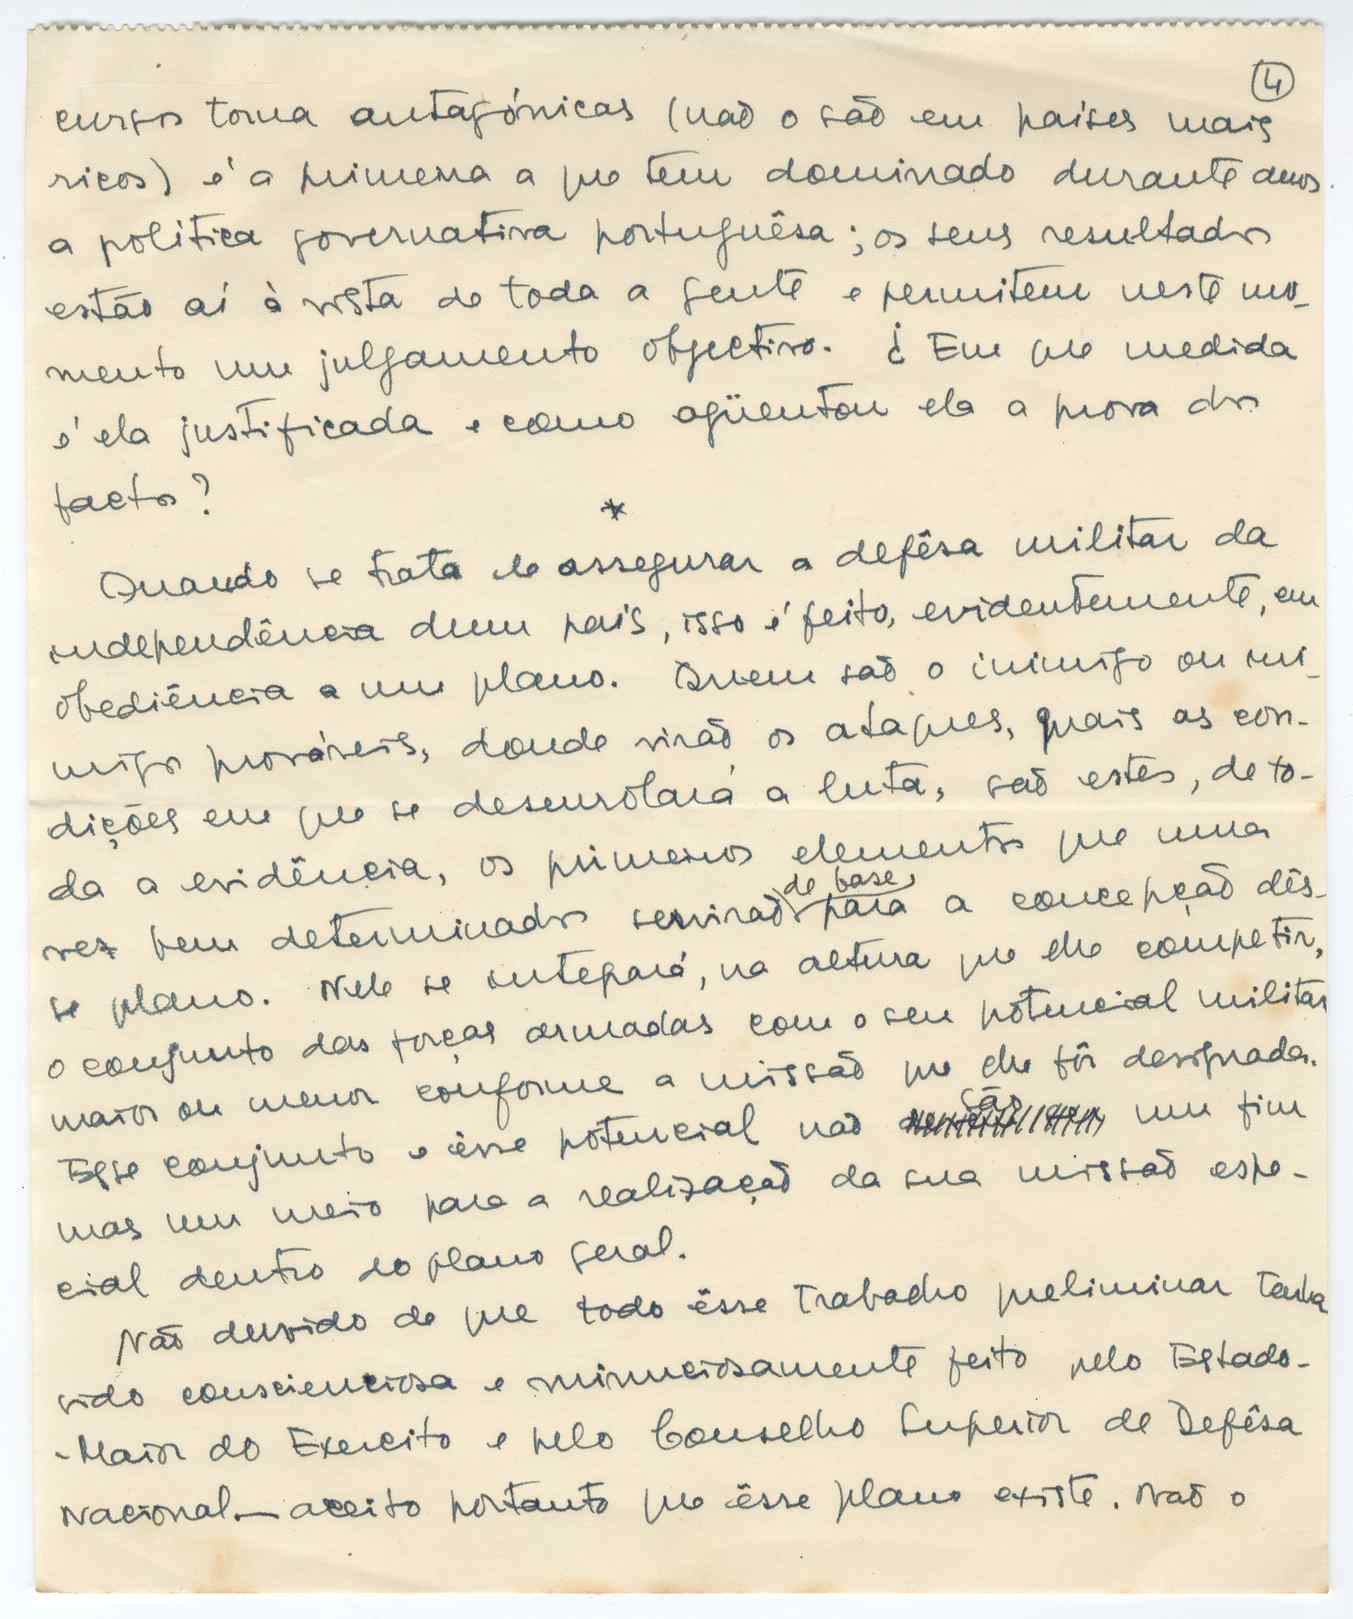 4
cursos torna antagónicas (não o são em países mais
ricos) é a primeira a que tem dominado durante anos
a política governativa portuguêsa; os seus resultados
estão aí à vista de toda a gente e permitem neste mo-
mento um julgamento objectivo. ¿ Em que medida
é ela justificada e como agüentou ela a prova dos
factos?
*
Quando se trata de assegurar a defêsa militar da
independência dum país, isso é feito, evidentemente, em
obediência a um plano. Quem são o inimigo ou ini-
migos prováveis, donde virão os ataques, quais as con-
dições em que se desenrolará a luta, são estes, de to-
da a evidência, os primeiros elementos que uma
vez bem determinados servirão de base para a concepção dês-
se plano. Nele se integrará, na altura que lhe competir,
o conjunto das forças armadas com o seu potencial militar
maior ou menor conforme a missão que lhe fôr designada.
Esse conjunto e êsse potencial não são um fim
mas um meio para a realização da sua missão espe-
cial dentro do plano geral.
Não duvido de que todo êsse trabalho preliminar tenha
sido conscienciosa e minuciosamente feito pelo Estado-
-Maior do Exercito e pelo Conselho Superior de Defêsa
Nacional — aceito portanto que êsse plano existe. Não o